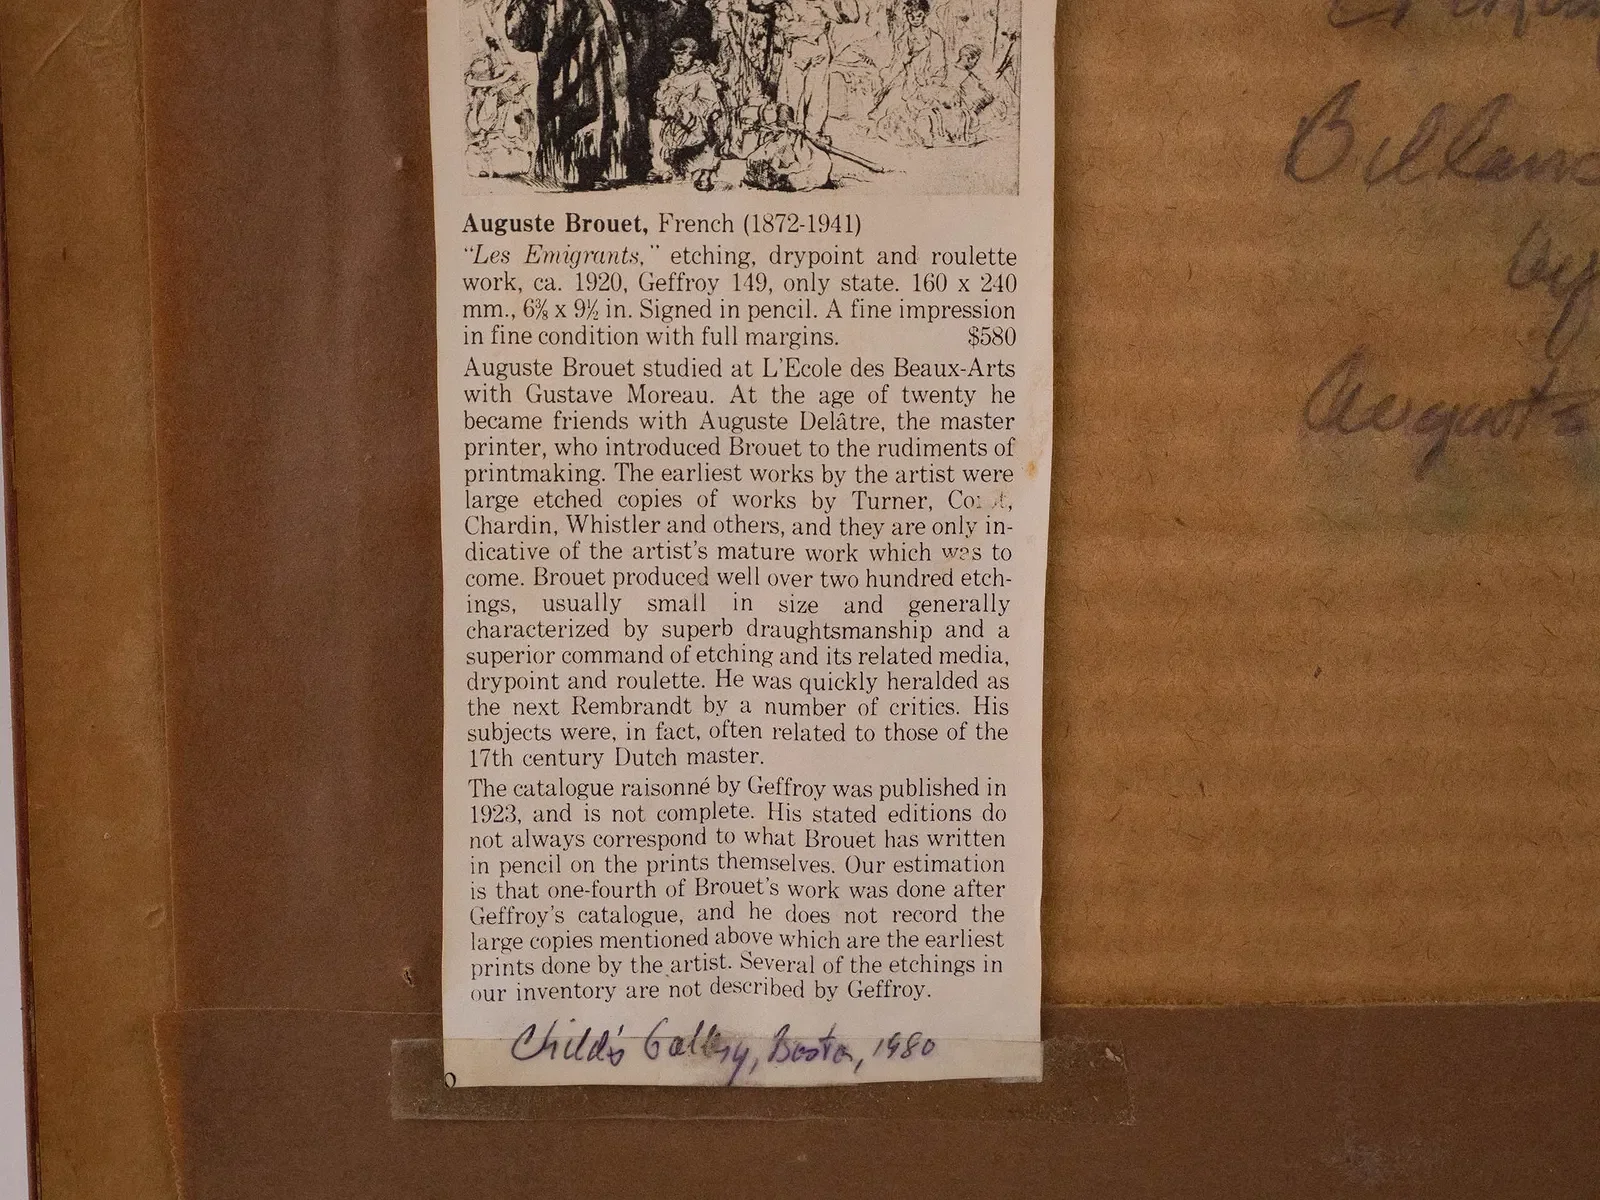 Auguste Brouet, French (1872-1941)
"Les Emigrants," etching, drypoint and roulette
work, ca. 1920, Geffroy 149, only state. 160 x 240
mm., 6⅜ x 9½ in. Signed in pencil. A fine impression
in fine condition with full margins. $580
Auguste Brouet studied at L'Ecole des Beaux-Arts
with Gustave Moreau. At the age of twenty he
became friends with Auguste Delâtre, the master
printer, who introduced Brouet to the rudiments of
printmaking. The earliest works by the artist were
large etched copies of works by Turner,
Chardin, Whistler and others, and they are only in-
dicative of the artist's mature work which was to
come. Brouet produced well over two hundred etch-
ings, usually small in size and generally
characterized by superb draughtsmanship and a
superior command of etching and its related media,
drypoint and roulette. He was quickly heralded as
the next Rembrandt by a number of critics. His
subjects were, in fact, often related to those of the
17th century Dutch master.
The catalogue raisonné by Geffroy was published in
1923, and is not complete. His stated editions do
not always correspond to what Brouet has written
in pencil on the prints themselves. Our estimation
is that one-fourth of Brouet's work was done after
Geffroy's catalogue, and he does not record the
large copies mentioned above which are the earliest
prints done by the artist. Several of the etchings in
our inventory are not described by Geffroy.
Child's Gallery, Boston, 1980
by